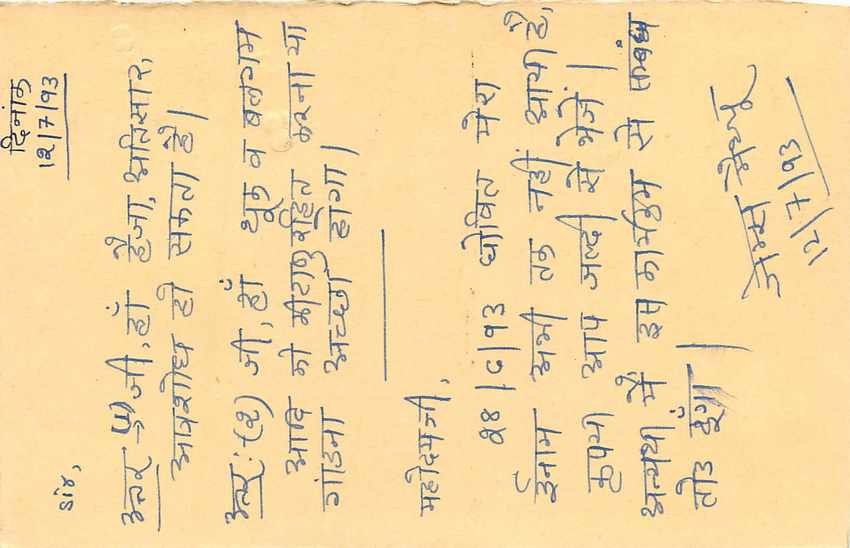 दिनांक
12/7/93
Sir,
उत्तर →(1) जी, हाँ हैजा, अतिसार,
आवशोध हो सकता है।
उत्तर:(2) जी, हाँ थूक व बलगम
आदि में कीटाणु रहित करना या
गाडना अच्छा होगा।
महोदयजी,
28/6/93 घोषित मेरा
ईनाम अभी तक नहीं आया है,
कृपया आप जल्दी से भेजें।
अन्यथा मैं इस कार्यक्रम से संबंध
तोड दूंगा।
12/7/93